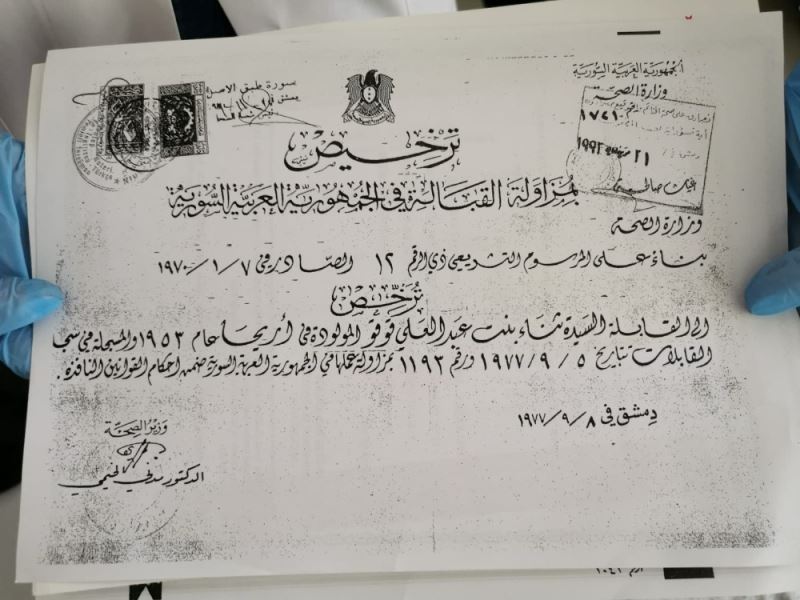 الجمهورية العربية السورية
وزارة الصحة
صورة طبق الأصل
دمشق
١٧٤١
٢١
١٩٩٢
ترخيص
بمزاولة القبالة في الجمهورية العربية السورية
وزارة الصحة
بناء على المرسوم التشريعي ذي الرقم ١٢ الصادر في ١٩٧٠/١/٧
ترخص
الى القابلة السيدة ثناء بنت عبد العلي قوقو المولودة في أريحا عام ١٩٥٣ والمسجلة في سجل
القابلات بتاريخ ١٩٧٧/٩/٥ ورقم ١١٩٣ بمزاولة عملها في الجمهورية العربية السورية ضمن احكام القوانين النافذة.
دمشق في ١٩٧٧/٩/٨
وزير الصحة
الدكتور مدني الخيمي